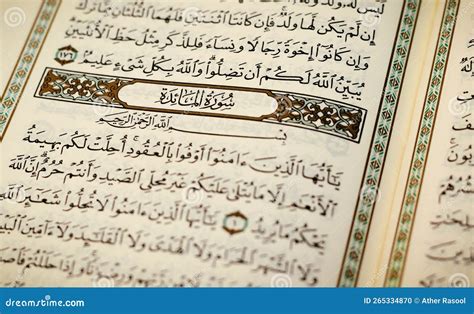 إِن لَّمْ يَكُن لَّهَا وَلَدٌ فَإِن كَانَتَا ٱثْنَتَيْنِ فَلَهُمَا
وَإِن كَانُوٓا۟ إِخْوَةً رِّجَالًا وَنِسَآءً فَلِلذَّكَرِ مِثْلُ حَظِّ ٱلْأُنثَيَيْنِ
يُبَيِّنُ ٱللَّهُ لَكُمْ أَن تَضِلُّوا۟ وَٱللَّهُ بِكُلِّ شَىْءٍ عَلِيمٌۢ ١٧٦
سُورَةُ المَائِدَةِ
بِسْمِ ٱللَّهِ ٱلرَّحْمَٰنِ ٱلرَّحِيمِ
يَٰٓأَيُّهَا ٱلَّذِينَ ءَامَنُوٓا۟ أَوْفُوا۟ بِٱلْعُقُودِ أُحِلَّتْ لَكُم بَهِيمَةُ
ٱلْأَنْعَٰمِ إِلَّا مَا يُتْلَىٰ عَلَيْكُمْ غَيْرَ مُحِلِّى ٱلصَّيْدِ وَأَنتُمْ حُرُمٌ إِنَّ ٱللَّهَ
يَحْكُمُ مَا يُرِيدُ ١ يَٰٓأَيُّهَا ٱلَّذِينَ ءَامَنُوا۟ لَا تُحِلُّوا۟ شَعَٰٓئِرَ ٱللَّهِ
وَلَا ٱلشَّهْرَ ٱلْحَرَامَ وَلَا ٱلْهَدْىَ وَلَا ٱلْقَلَٰٓئِدَ وَلَآ ءَآمِّينَ ٱلْبَيْتَ
وَإِذَا حَلَلْتُمْ
dreamstime.com
ID 265334870 © Ather Rasool